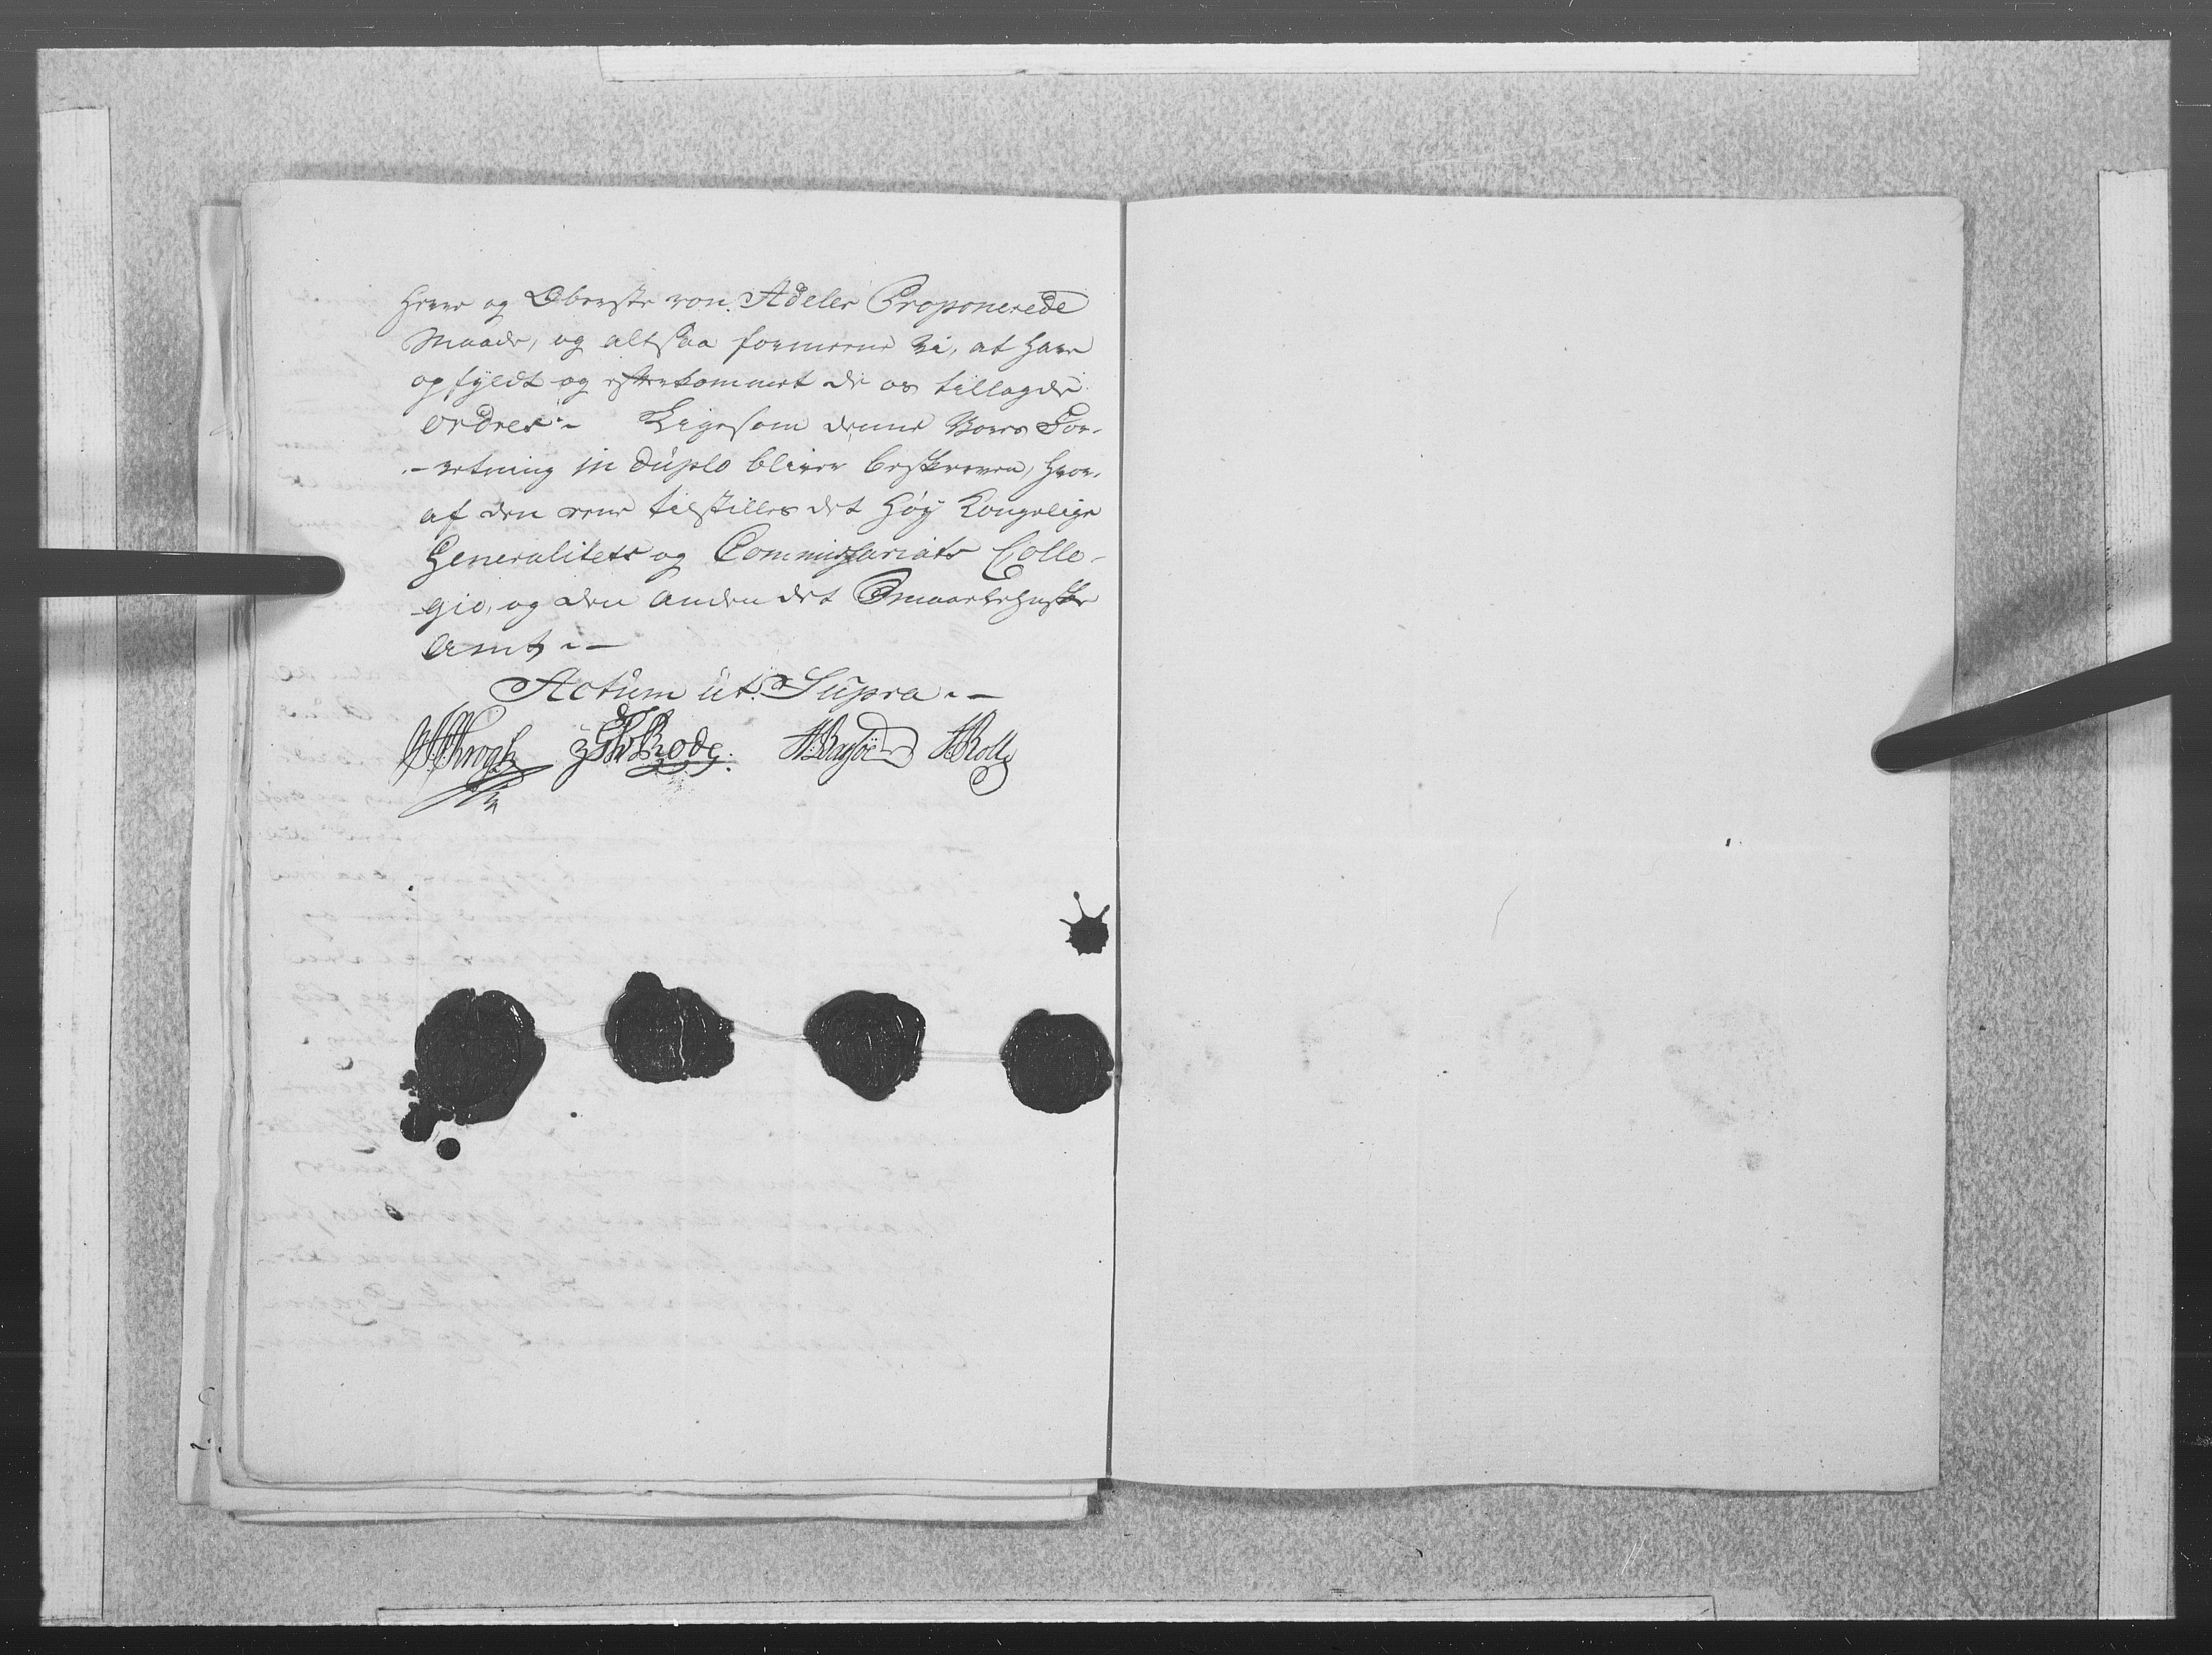 Herre og Oberste von Adeler Proponerede
Maade, og altsaa formeene Vi, at have
opfyldt og efterkommet de os tillagde
Ordres.- Ligesom denne Vores For-
-retning in Duplo bliver beskreven, hvor-
af den eene tilstilles det Høy Kongelige
Generalitets og Commissariats Colle-
gio, og den anden det Smaalehnske
Amt.-
Actum ut Supra.-
Krogh Rode